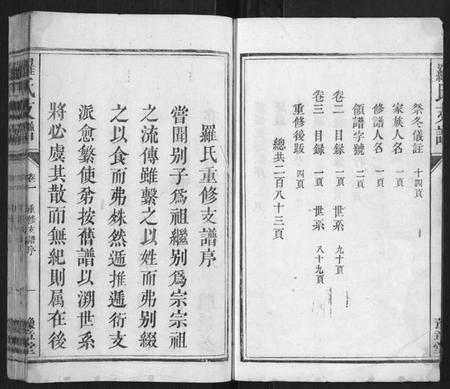 祭冬儀註 十四頁
家族人名 一頁
修譜人名 一頁
領譜字號 三頁
卷二 目錄 一頁 世系 九十頁
卷三 目錄 一頁 世系 八十九頁
重修後跋 一頁
總共二百八十三頁
羅氏支譜
卷一 重修支譜序
一
豫章堂
羅氏重修支譜序
嘗聞别子為祖繼别為宗宗祖
之流傳雖繫之以姓而弗别綴
之以食而弗殊然遞推遞衍支
派愈繁使弟按舊譜以溯世系
將必虞其散而無紀則属在後